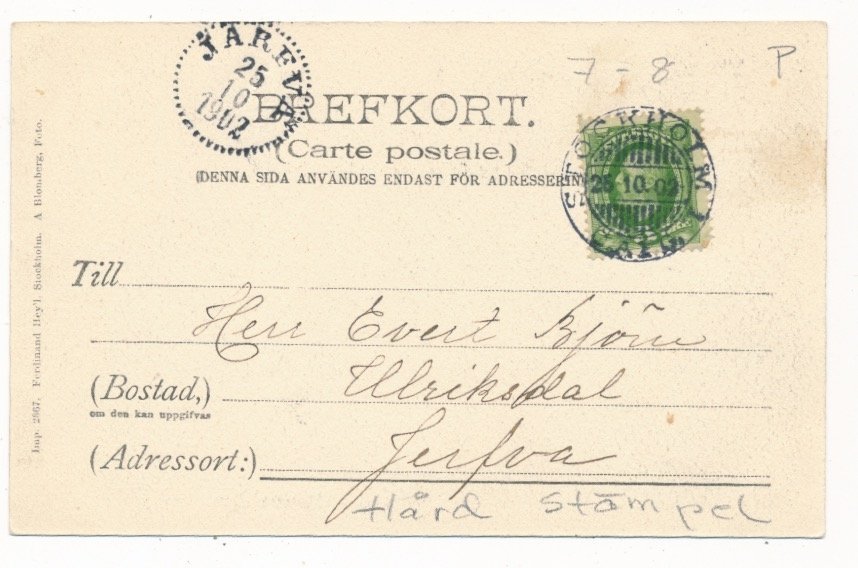 7 - 8 P.
JÄRFVA
25
10
1902
BREFKORT.
(Carte postale.)
(DENNA SIDA ANVÄNDES ENDAST FÖR ADRESSERIN
STOCKHOLM 1
25.10.02
Till
Herr Evert Björn
(Bostad,) Ulriksdal
om den kan uppgifvas
(Adressort:) Jerfva
Hård stämpel
Imp. 2867. Ferdinand Hey'l. Stockholm. A Blomberg, Foto.